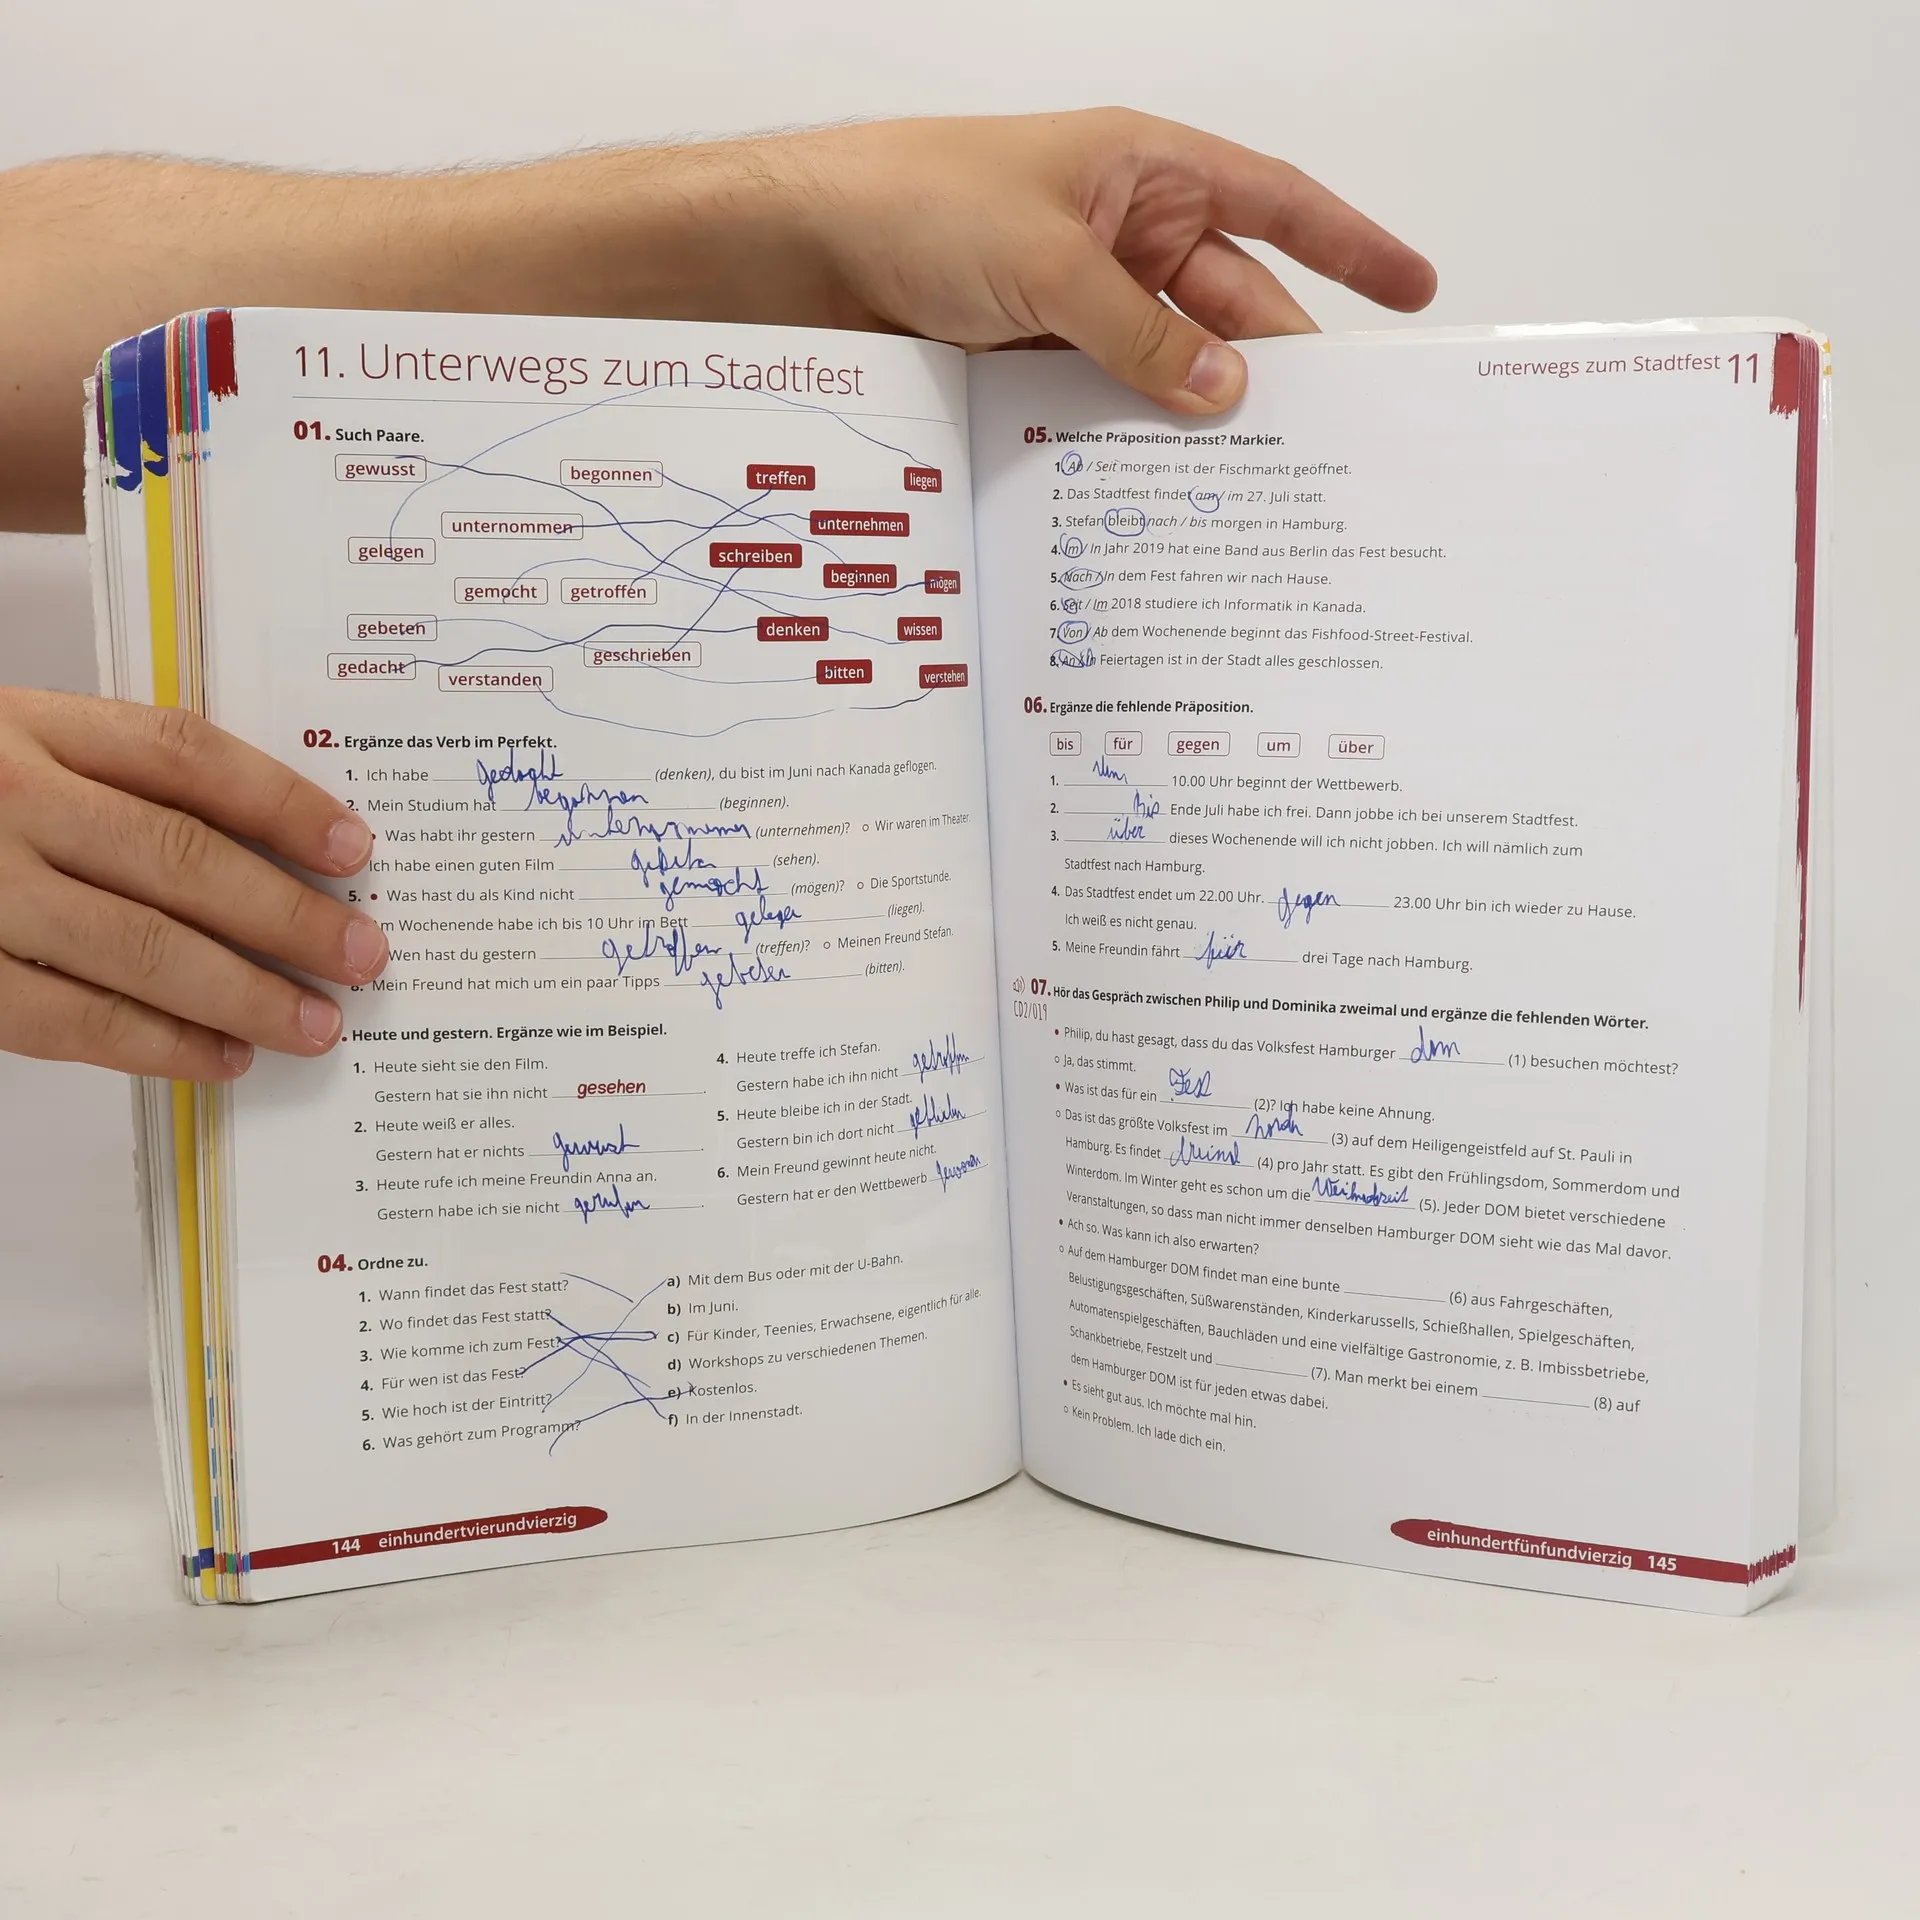 11. Unterwegs zum Stadtfest
01. Such Paare.
gewusst begonnen treffen liegen
unternommen unternehmen
gelegen schreiben
gemocht getroffen beginnen mögen
gebeten denken wissen
gedacht verstanden geschrieben bitten verstehen
02. Ergänze das Verb im Perfekt.
1. Ich habe gedacht (denken), du bist im Juni nach Kanada geflogen.
2. Mein Studium hat begonnen (beginnen).
• Was habt ihr gestern unternommen (unternehmen)? o Wir waren im Theater.
Ich habe einen guten Film (sehen).
5. • Was hast du als Kind nicht gemocht (mögen)? o Die Sportstunde.
m Wochenende habe ich bis 10 Uhr im Bett gelegen (liegen).
Wen hast du gestern getroffen (treffen)? o Meinen Freund Stefan.
8. Mein Freund hat mich um ein paar Tipps gebeten (bitten).
. Heute und gestern. Ergänze wie im Beispiel.
1. Heute sieht sie den Film.
Gestern hat sie ihn nicht gesehen.
2. Heute weiß er alles.
Gestern hat er nichts gewusst.
3. Heute rufe ich meine Freundin Anna an.
Gestern habe ich sie nicht gerufen.
4. Heute treffe ich Stefan.
Gestern habe ich ihn nicht getroffen.
5. Heute bleibe ich in der Stadt.
Gestern bin ich dort nicht geblieben.
6. Mein Freund gewinnt heute nicht.
Gestern hat er den Wettbewerb
04. Ordne zu.
1. Wann findet das Fest statt?
2. Wo findet das Fest statt?
3. Wie komme ich zum Fest?
4. Für wen ist das Fest?
5. Wie hoch ist der Eintritt?
6. Was gehört zum Programm?
a) Mit dem Bus oder mit der U-Bahn.
b) Im Juni.
c) Für Kinder, Teenies, Erwachsene, eigentlich für alle.
d) Workshops zu verschiedenen Themen.
e) Kostenlos.
f) In der Innenstadt.
144 einhundertvierundvierzig
Unterwegs zum Stadtfest 11
05. Welche Präposition passt? Markier.
1. Ab / Seit morgen ist der Fischmarkt geöffnet.
2. Das Stadtfest findet am / im 27. Juli statt.
3. Stefan bleibt nach / bis morgen in Hamburg.
4. Im / In Jahr 2019 hat eine Band aus Berlin das Fest besucht.
5. Nach / In dem Fest fahren wir nach Hause.
6. Seit / Im 2018 studiere ich Informatik in Kanada.
7. Von / Ab dem Wochenende beginnt das Fishfood-Street-Festival.
8. An / In Feiertagen ist in der Stadt alles geschlossen.
06. Ergänze die fehlende Präposition.
bis für gegen um über
1. Um 10.00 Uhr beginnt der Wettbewerb.
2. bis Ende Juli habe ich frei. Dann jobbe ich bei unserem Stadtfest.
3. über dieses Wochenende will ich nicht jobben. Ich will nämlich zum
Stadtfest nach Hamburg.
4. Das Stadtfest endet um 22.00 Uhr. gegen 23.00 Uhr bin ich wieder zu Hause.
Ich weiß es nicht genau.
5. Meine Freundin fährt für drei Tage nach Hamburg.
07. Hör das Gespräch zwischen Philip und Dominika zweimal und ergänze die fehlenden Wörter.
CD2/019
• Philip, du hast gesagt, dass du das Volksfest Hamburger dom (1) besuchen möchtest?
o Ja, das stimmt.
• Was ist das für ein Fest (2)? Ich habe keine Ahnung.
o Das ist das größte Volksfest im (3) auf dem Heiligengeistfeld auf St. Pauli in
Hamburg. Es findet (4) pro Jahr statt. Es gibt den Frühlingsdom, Sommerdom und
Winterdom. Im Winter geht es schon um die (5). Jeder DOM bietet verschiedene
Veranstaltungen, so dass man nicht immer denselben Hamburger DOM sieht wie das Mal davor.
• Ach so. Was kann ich also erwarten?
o Auf dem Hamburger DOM findet man eine bunte (6) aus Fahrgeschäften,
Belustigungsgeschäften, Süßwarenständen, Kinderkarussells, Schießhallen, Spielgeschäften,
Automatenspielgeschäften, Bauchläden und eine vielfältige Gastronomie, z. B. Imbissbetriebe,
Schankbetriebe, Festzelt und (7). Man merkt bei einem (8) auf
dem Hamburger DOM ist für jeden etwas dabei.
• Es sieht gut aus. Ich möchte mal hin.
o Kein Problem. Ich lade dich ein.
einhundertfünfundvierzig 145